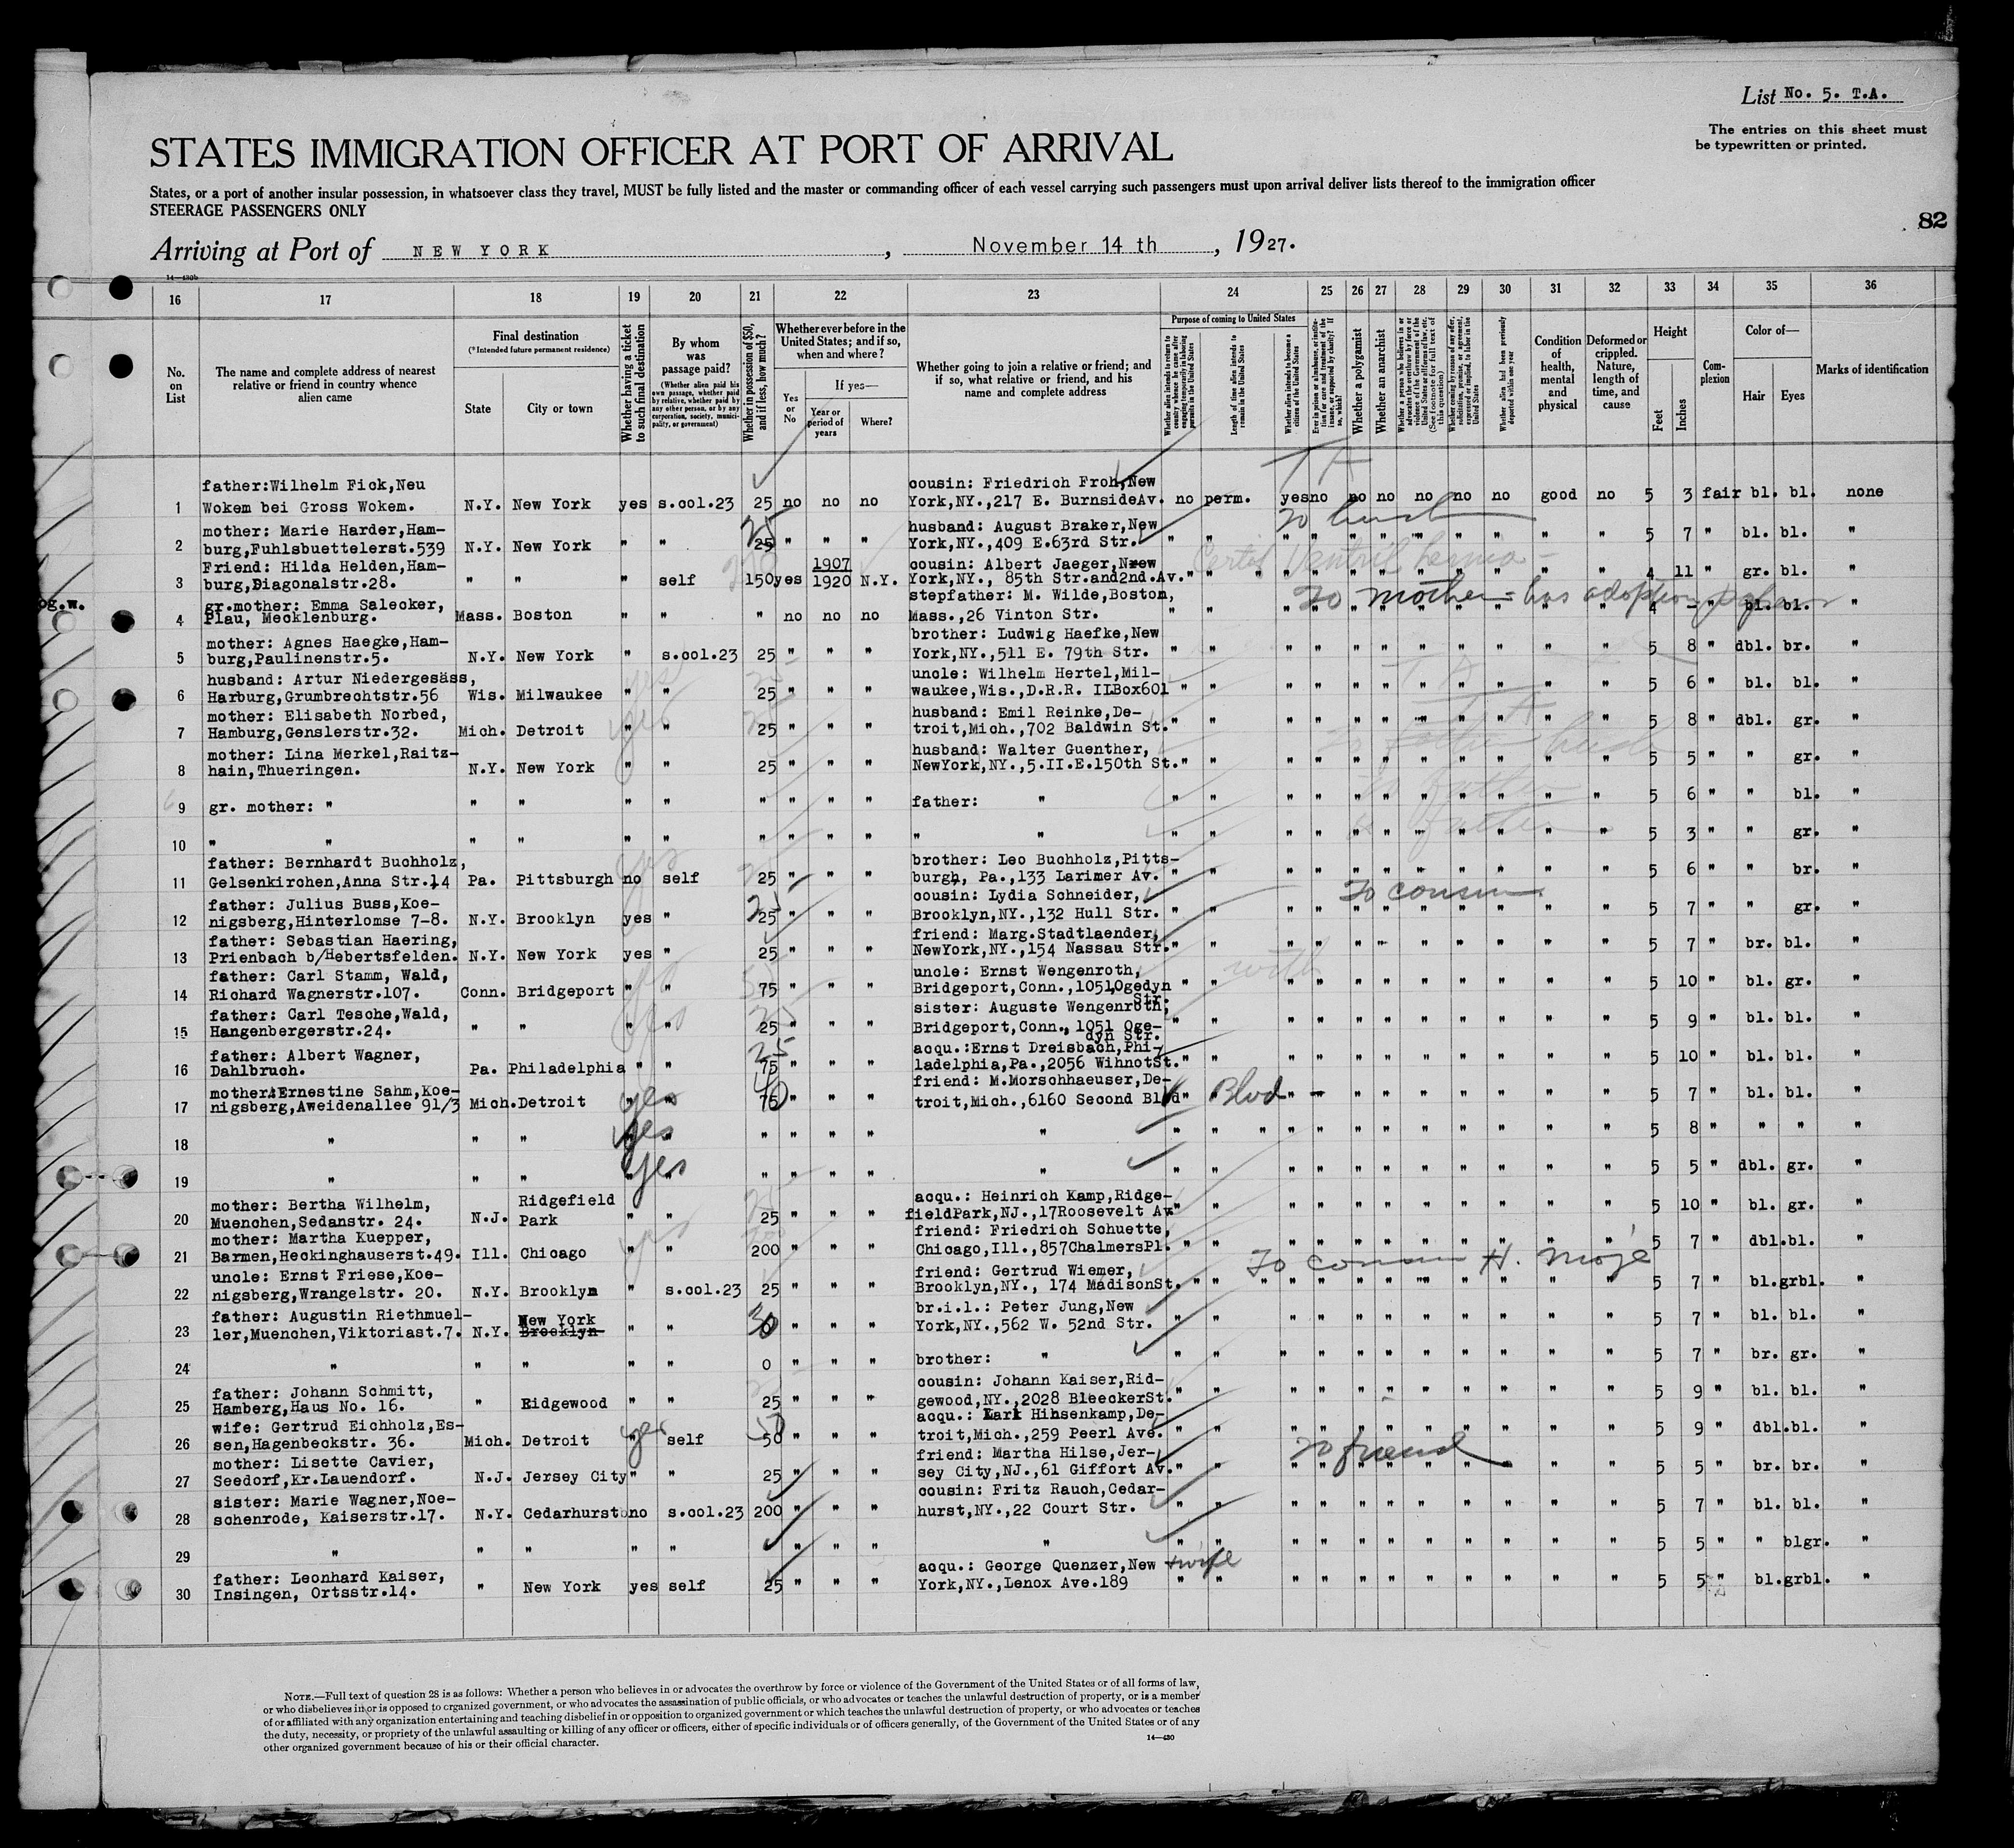 List No. 5. T.A.
The entries on this sheet must
be typewritten or printed.
STATES IMMIGRATION OFFICER AT PORT OF ARRIVAL
States, or a port of another insular possession, in whatsoever class they travel, MUST be fully listed and the master or commanding officer of each vessel carrying such passengers must upon arrival deliver lists thereof to the immigration officer
STEERAGE PASSENGERS ONLY
82
Arriving at Port of NEW YORK, November 14 th, 1927.
14—430b
16 17 18 19 20 21 22 23 24 25 26 27 28 29 30 31 32 33 34 35 36
No. on List
The name and complete address of nearest relative or friend in country whence alien came
Final destination
(*Intended future permanent residence)
State
City or town
Whether having a ticket to such final destination
By whom was passage paid?
(Whether alien paid his own passage, whether paid by relative, whether paid by any other person, or by any corporation, society, municipality, or government)
Whether in possession of $50, and if less, how much?
Whether ever before in the United States; and if so, when and where?
Yes or No
If yes—
Year or period of years
Where?
Whether going to join a relative or friend; and if so, what relative or friend, and his name and complete address
Purpose of coming to United States
Whether alien intends to return to country whence he came after engaging temporarily in laboring pursuits in the United States
Length of time alien intends to remain in the United States
Whether alien intends to become a citizen of the United States
Whether a polygamist
Whether an anarchist
Condition of health, mental and physical
Deformed or crippled. Nature, length of time, and cause
Height
Feet
Inches
Complexion
Color of—
Hair
Eyes
Marks of identification
father:Wilhelm Fick,Neu cousin: Friedrich Froh,New
1 Wokem bei Gross Wokem. N.Y. New York yes s.col.23 25 no no no York,NY.,217 E. BurnsideAv. no perm. yes no no no no no no good no 5 3 fair bl. bl. none
To husb
mother: Marie Harder,Ham- husband: August Braker,New
2 burg,Fuhlsbuettelerst.539 N.Y. New York " " 25 " " " York,NY.,409 E.63rd Str. " " " " " " " " " " " 5 7 " bl. bl. "
Friend: Hilda Helden,Ham- 1907 cousin: Albert Jaeger,New
3 burg,Diagonalstr.28. " " " self 150 yes 1920 N.Y. York,NY., 85th Str.and2nd.Av. " " " " " " " " " " " 4 11 " gr. bl. "
To mother - has adoption papers
og.w.
gr.mother: Emma Salecker, stepfather: M. Wilde,Boston,
4 Plau, Mecklenburg. Mass. Boston " " " no no no Mass.,26 Vinton Str. " " " " " " " " " " " 4 - " bl. bl. "
mother: Agnes Haegke,Ham- brother: Ludwig Haefke,New
5 burg,Paulinenstr.5. N.Y. New York " s.col.23 25 " " " York,NY.,511 E. 79th Str. " " " " " " " " " " " 5 8 " dbl. br. "
husband: Artur Niedergesäss, uncle: Wilhelm Hertel,Mil-
6 Harburg,Grumbrechtstr.56 Wis. Milwaukee " " 25 " " " waukee,Wis.,D.R.R. II.Box601 " " " " " " " " " " " 5 6 " bl. bl. "
mother: Elisabeth Norbed, husband: Emil Reinke,De-
7 Hamburg,Genslerstr.32. Mich. Detroit " " 25 " " " troit,Mich.,702 Baldwin St. " " " " " " " " " " " 5 8 " dbl. gr. "
mother: Lina Merkel,Raitz- husband: Walter Guenther,
8 hain,Thueringen. N.Y. New York " " 25 " " " NewYork,NY.,5.II.E.150th St. " " " " " " " " " " " 5 5 " " gr. "
9 gr. mother: " " " " " " " " " father: " " " " " " " " " " " " 5 6 " " bl. "
10 " " " " " " " " " " " " " " " " " " " " " " " 5 3 " " gr. "
father: Bernhardt Buchholz, brother: Leo Buchholz,Pitts-
11 Gelsenkirchen,Anna Str.14 Pa. Pittsburgh no self 25 " " " burgh, Pa.,133 Larimer Av. " " " " " " " " " " " 5 6 " " br. "
To cousin
father: Julius Buss,Koe- cousin: Lydia Schneider,
12 nigsberg,Hinterlomse 7-8. N.Y. Brooklyn yes " 25 " " " Brooklyn,NY.,132 Hull Str. " " " " " " " " " " " 5 7 " " gr. "
father: Sebastian Haering, friend: Marg.Stadtlaender,
13 Prienbach b/Hebertsfelden. N.Y. New York yes " 25 " " " NewYork,NY.,154 Nassau Str. " " " " " " " " " " " 5 7 " br. bl. "
father: Carl Stamm, Wald, uncle: Ernst Wengenroth,
14 Richard Wagnerstr.107. Conn. Bridgeport " " 75 " " " Bridgeport,Conn.,1051,Ogedyn Str. " " " " " " " " " " " 5 10 " bl. gr. "
father: Carl Tesche,Wald, sister: Auguste Wengenroth,
15 Hangenbergerstr.24. " " " " 25 " " " Bridgeport,Conn., 1051 Oge-dyn Str. " " " " " " " " " " " 5 9 " bl. bl. "
father: Albert Wagner, acqu.:Ernst Dreisbach,Phi-
16 Dahlbruch. Pa. Philadelphia " " 75 " " " ladelphia,Pa.,2056 WihnotSt. " " " " " " " " " " " 5 10 " bl. bl. "
mother:Ernestine Sahm,Koe- friend: M.Morschhaeuser,De-
17 nigsberg,Aweidenallee 91/3 Mich. Detroit yes " 75 " " " troit,Mich.,6160 Second Blvd " Blvd " " " " " " " " " 5 7 " bl. bl. "
18 " " " yes " " " " " " " " " " " " " " " " " " 5 8 " " " "
19 " " " yes " " " " " " " " " " " " " " " " " 5 5 " dbl. gr. "
mother: Bertha Wilhelm, Ridgefield acqu.: Heinrich Kamp,Ridge-
20 Muenchen,Sedanstr. 24. N.J. Park " " 25 " " " fieldPark,NJ.,17Roosevelt Av " " " " " " " " " " " 5 10 " bl. gr. "
mother: Martha Kuepper, friend: Friedrich Schuette,
21 Barmen,Heckinghauserst.49. Ill. Chicago " " 200 " " " Chicago,Ill.,857ChalmersPl. " " " " " " " " " " " 5 7 " dbl. bl. "
To cousin H. Moje
uncle: Ernst Friese,Koe- friend: Gertrud Wiemer,
22 nigsberg,Wrangelstr. 20. N.Y. Brooklyn " s.col.23 25 " " " Brooklyn,NY., 174 MadisonSt. " " " " " " " " " " " 5 7 " bl. grbl. "
father: Augustin Riethmuel- New York br.i.l.: Peter Jung,New
23 ler,Muenchen,Viktoriast.7. N.Y. Brooklyn " " 30 " " " York,NY.,562 W. 52nd Str. " " " " " " " " " " " 5 7 " bl. bl. "
24 " " " " " 0 " " " brother: " " " " " " " " " " " " 5 7 " br. gr. "
father: Johann Schmitt, cousin: Johann Kaiser,Rid-
25 Hamberg,Haus No. 16. " Ridgewood " " 25 " " " gewood,NY.,2028 BleeckerSt. " " " " " " " " " " " 5 9 " bl. bl. "
wife: Gertrud Eichholz,Es- acqu.: Hinsenkamp,De-
26 sen,Hagenbeckstr. 36. Mich. Detroit yes self 50 " " " troit,Mich.,259 Peerl Ave. " " " " " " " " " " " 5 9 " dbl. bl. "
To friend
mother: Lisette Cavier, friend: Martha Hilse,Jer-
27 Seedorf,Kr.Lauendorf. N.J. Jersey City " " 25 " " " sey City,NJ.,61 Giffort Av. " " " " " " " " " " " 5 5 " br. br. "
sister: Marie Wagner,Noe- cousin: Fritz Rauch,Cedar-
28 schenrode, Kaiserstr.17. N.Y. Cedarhurst no s.col.23 200 " " " hurst,NY.,22 Court Str. " " " " " " " " " " " 5 7 " bl. bl. "
29 " " " " " " " " " " " " " " " " " " " " 5 5 " " blgr. "
father: Leonhard Kaiser, acqu.: George Quenzer,New + wife
30 Insingen, Ortsstr.14. " New York yes self 25 " " " York,NY.,Lenox Ave.189 " " " " " " " " " " " 5 5 " bl. grbl. "
NOTE.—Full text of question 28 is as follows: Whether a person who believes in or advocates the overthrow by force or violence of the Government of the United States or of all forms of law,
or who disbelieves in or is opposed to organized government, or who advocates the assassination of public officials, or who advocates or teaches the unlawful destruction of property, or is a member
of or affiliated with any organization entertaining and teaching disbelief in or opposition to organized government or which teaches the unlawful destruction of property, or who advocates or teaches
the duty, necessity, or propriety of the unlawful assaulting or killing of any officer or officers, either of specific individuals or of officers generally, of the Government of the United States or of any
other organized government because of his or their official character.
14—430